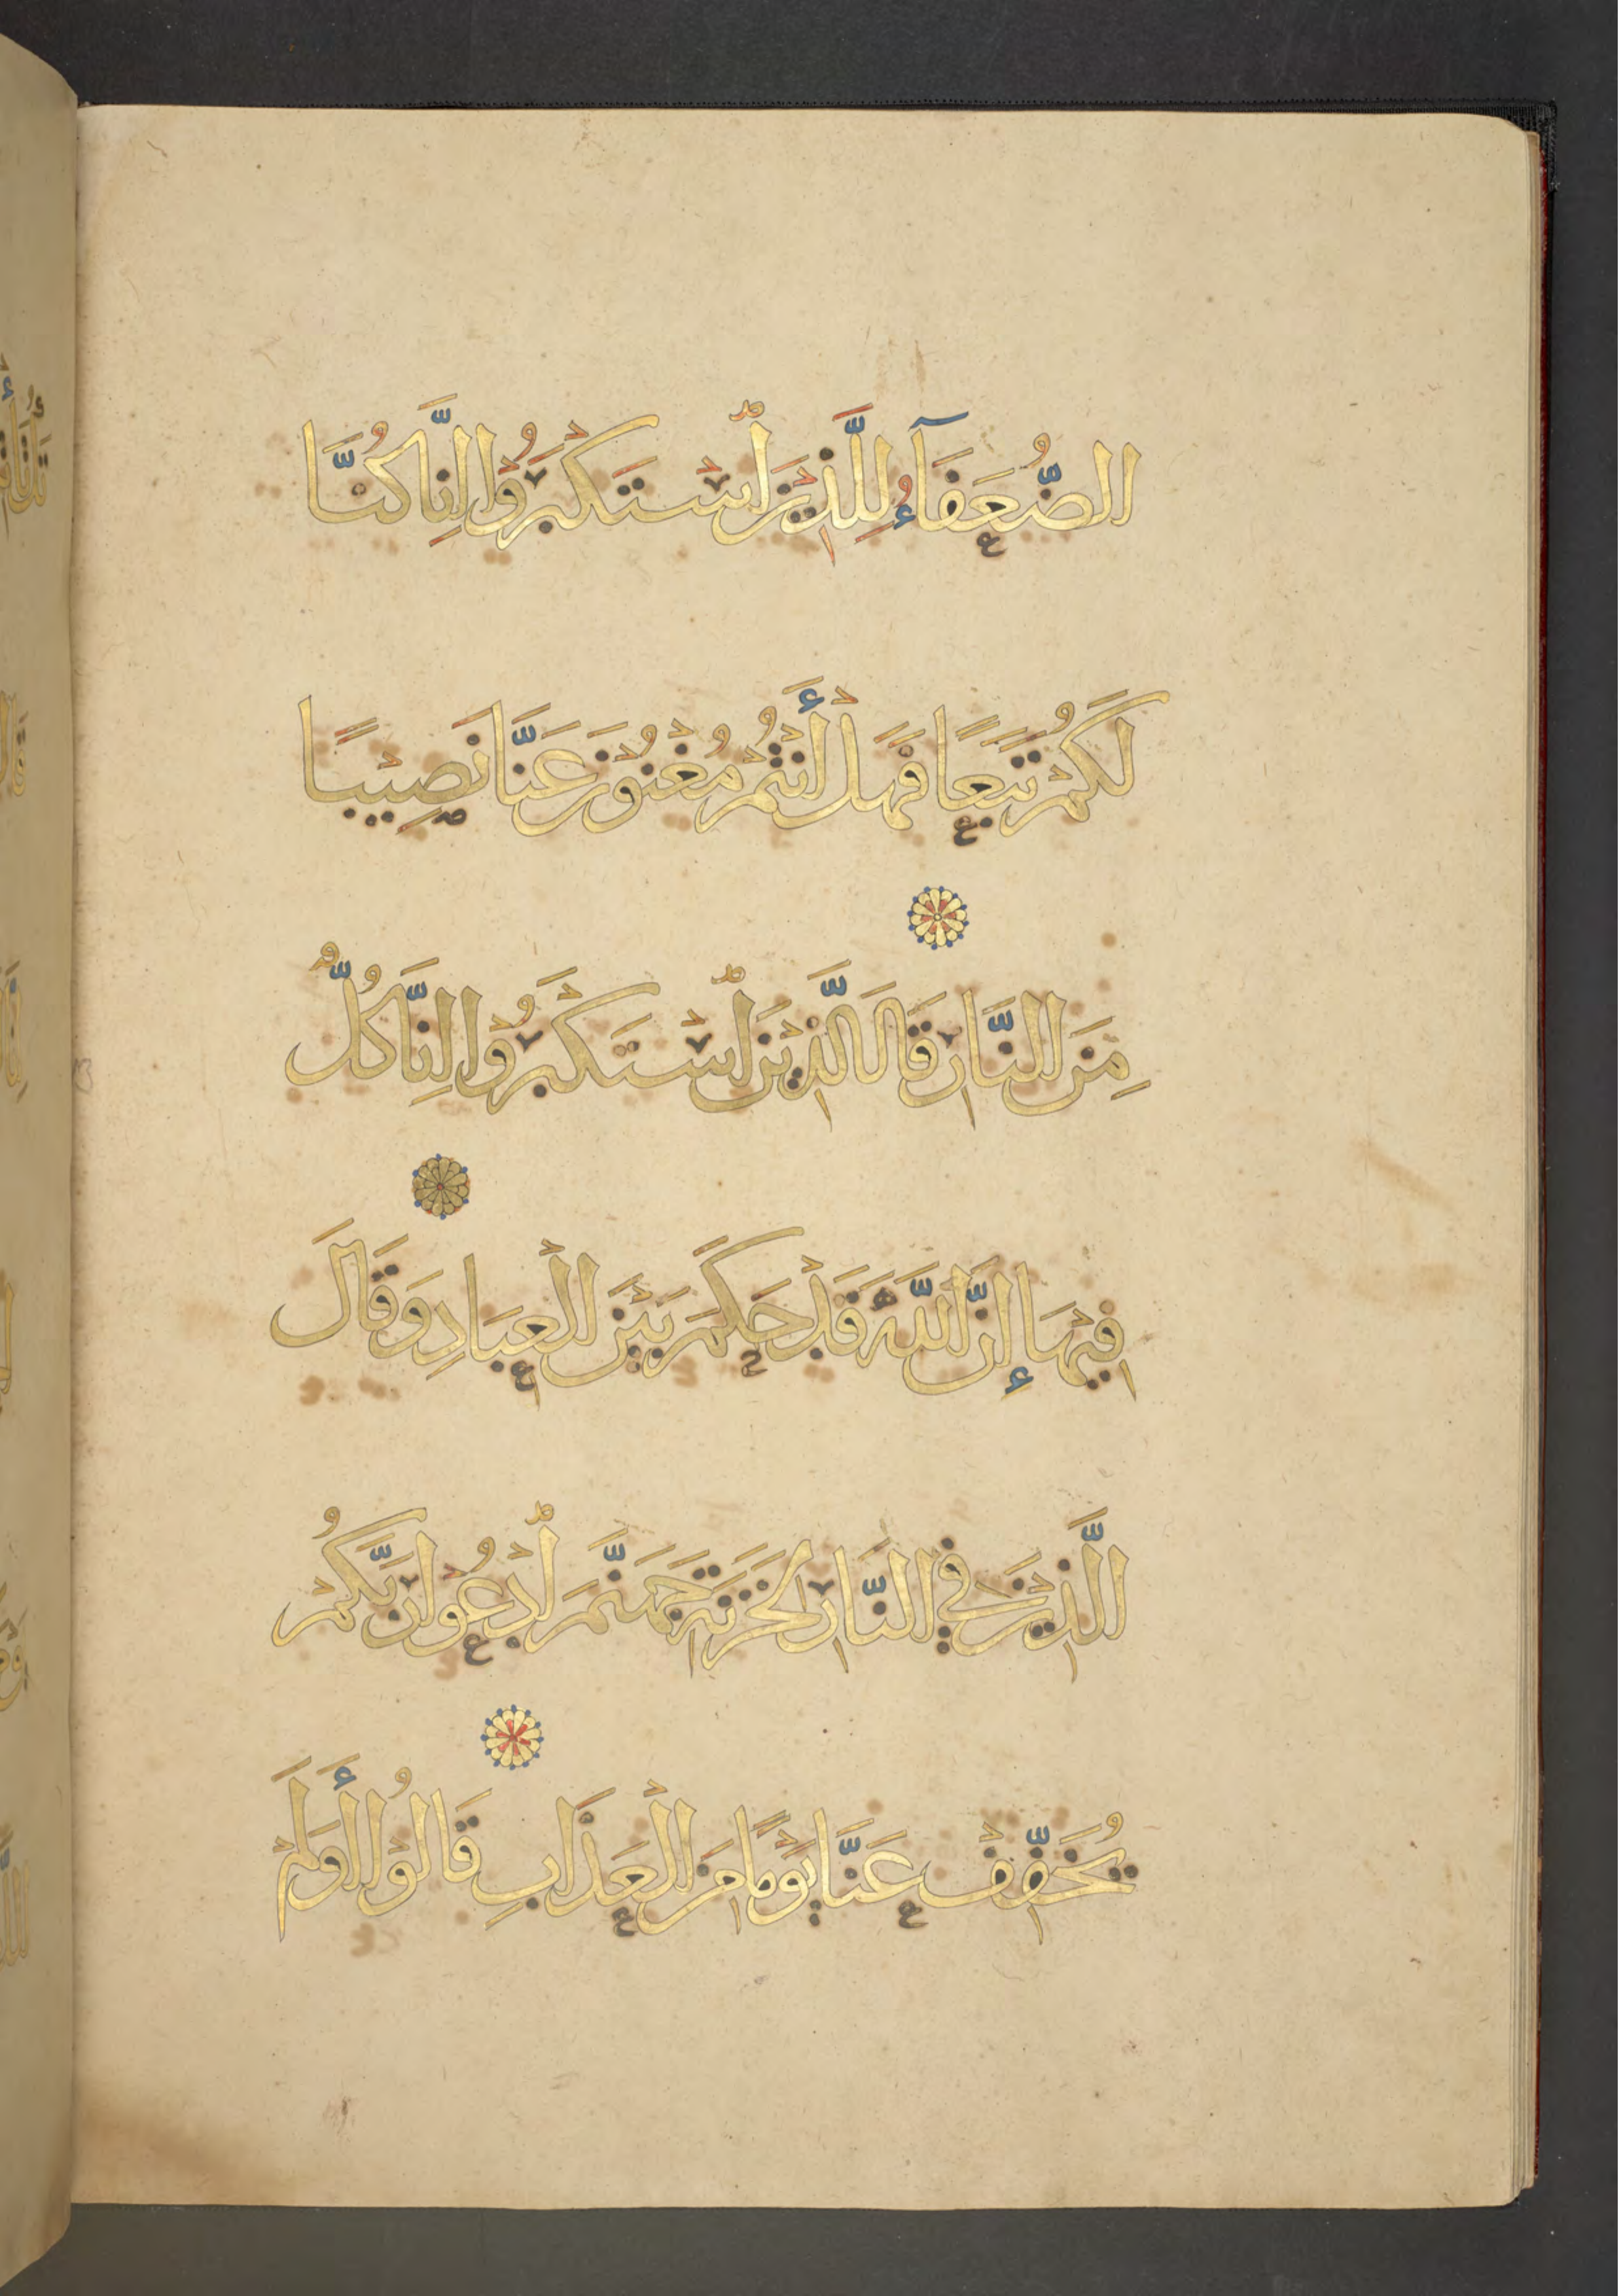 الضُّعَفَآءُ لِلَّذِينَ اسْتَكْبَرُوْا إِنَّا كُنَّا
لَكُمْ تَبَعًا فَهَلْ أَنْتُمْ مُغْنُوْنَ عَنَّا نَصِيْبًا
مِنَ النَّارِ قَالَ الَّذِيْنَ اسْتَكْبَرُوْا إِنَّا كُلٌّ
فِيْهَا إِنَّ اللَّهَ قَدْ حَكَمَ بَيْنَ الْعِبَادِ وَقَالَ
الَّذِيْنَ فِي النَّارِ لِخَزَنَةِ جَهَنَّمَ ادْعُوْا رَبَّكُمْ
يُخَفِّفْ عَنَّا يَوْمًا مِنَ الْعَذَابِ قَالُوْا أَوَلَمْ